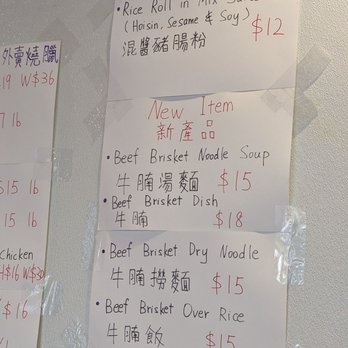 外賣燒臘
19 W$36
lb
$15 lb
15 lb
Chicken
H$16 W$30
$16
• Rice Roll in Mix
(Hoisin, Sesame & Soy) $12
混醬豬腸粉
New Item
新產品
• Beef Brisket Noodle Soup
牛腩湯麵 $15
• Beef Brisket Dish
牛腩 $18
• Beef Brisket Dry Noodle
牛腩撈麵 $15
• Beef Brisket Over Rice
牛腩飯 $15